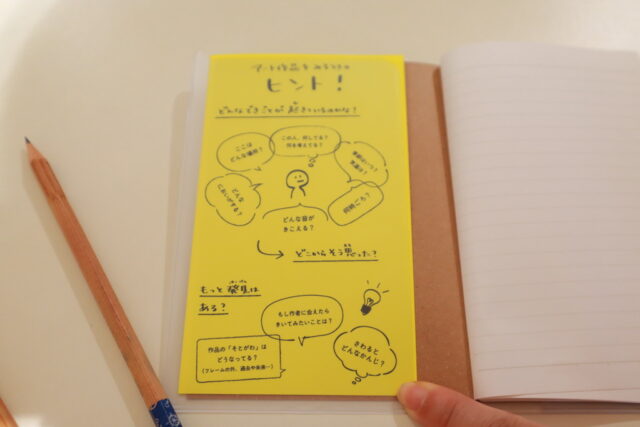 アート作品をみるときの
ヒント!
どんなできごとが起きているのかな?
ここは
どんな場所?
この人、何してる?
何を考えてる?
季節はいつ?
天気は?
どんな
においがする?
何時ごろ?
どんな音が
きこえる?
どこからそう思った?
もっと発見は
ある?
もし作者に会えたら
きいてみたいことは?
作品の「そとがわ」は
どうなってる?
(フレームの外、過去や未来…)
さわると
どんなかんじ?